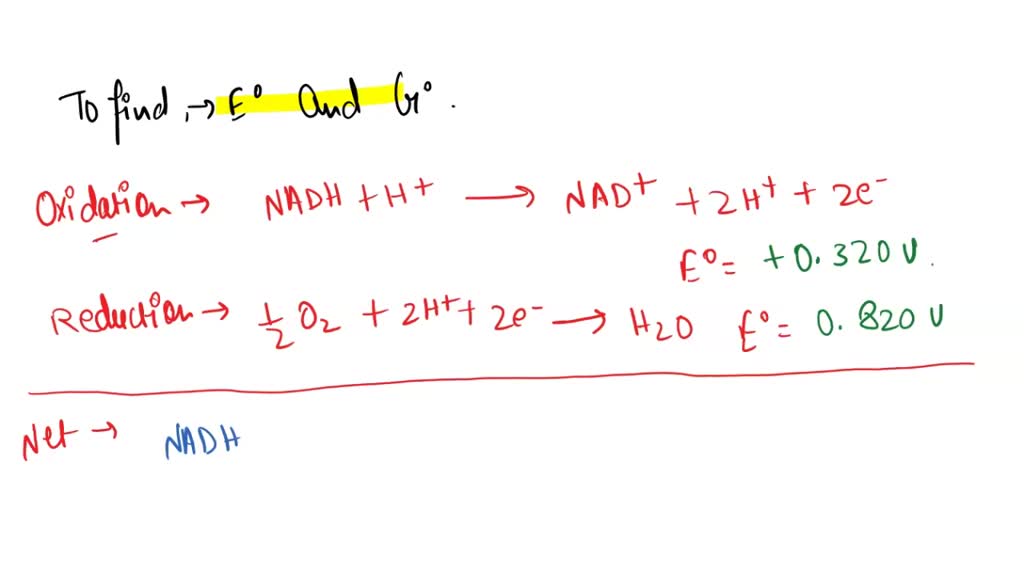 To find, → E° And G° .
Oxidation → NADH + H⁺ ⟶ NAD⁺ + 2H⁺ + 2e⁻
E° = +0.320 V.
Reduction → 1/2 O₂ + 2H⁺ + 2e⁻ ⟶ H₂O E° = 0.820 V
Net → NADH